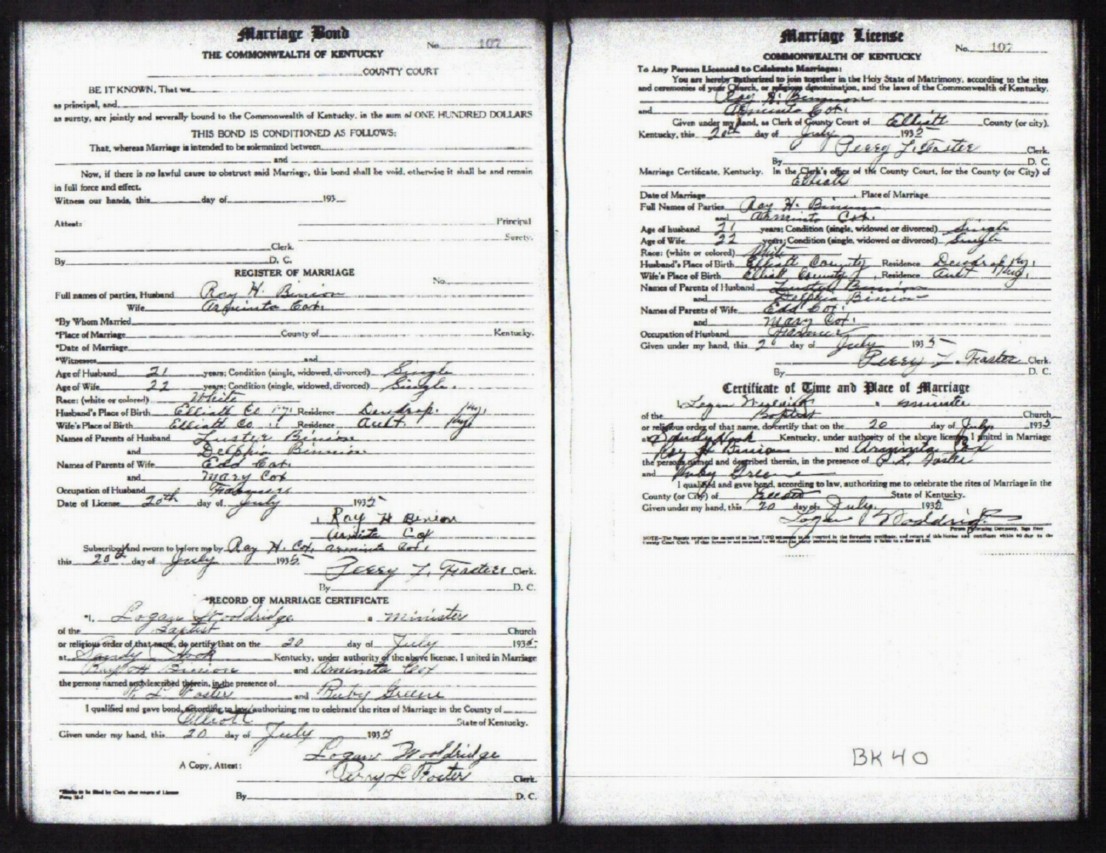 Marriage Bond
No. 107
THE COMMONWEALTH OF KENTUCKY
COUNTY COURT
BE IT KNOWN, That we
as principal, and
as surety, are jointly and severally bound to the Commonwealth of Kentucky, in the sum of ONE HUNDRED DOLLARS
THIS BOND IS CONDITIONED AS FOLLOWS:
That, whereas Marriage is intended to be solemnized between
and
Now, if there is no lawful cause to obstruct said Marriage, this bond shall be void, otherwise it shall be and remain
in full force and effect.
Witness our hands, this day of 193
Attest: Principal
Surety.
Clerk.
By D. C.
REGISTER OF MARRIAGE
No.
Full names of parties, Husband Roy H. Binion
Wife Arminta Cox.
*By Whom Married
*Place of Marriage County of Kentucky.
*Date of Marriage
*Witnesses and
Age of Husband 21 years; Condition (single, widowed, divorced) Single
Age of Wife 22 years; Condition (single, widowed, divorced) Single.
Race: (white or colored) White
Husband's Place of Birth Elliott Co Ky. Residence Dewdrop. Ky.
Wife's Place of Birth Elliott Co Residence Ault. Ky.
Names of Parents of Husband Luster Binion
and Delphia Binion
Names of Parents of Wife Edd Cox.
and Mary Cox
Occupation of Husband
Date of License 20th day of July 1935
Roy H Binion
Armita Cox
Subscribed and sworn to before me by Roy H. Cox, Arminta Cox.
this 20th day of July 1935
Perry L. Foster Clerk.
By D. C.
*RECORD OF MARRIAGE CERTIFICATE
*I, Logan Wooldridge a Minister
of the Baptist Church
or religious order of that name, do certify that on the 20 day of July 1935
at Sandy Hook Kentucky, under authority of the above license, I united in Marriage
Roy H Binion and Arminta Cox
the persons named and described therein, in the presence of
P. L. Foster and Ruby Greene
I qualified and gave bond, according to law, authorizing me to celebrate the rites of Marriage in the County of
Elliott State of Kentucky.
Given under my hand, this 20 day of July 1935
Logan Wooldridge
A Copy, Attest: Perry L Foster Clerk.
By D. C.
Marriage License
No. 107
COMMONWEALTH OF KENTUCKY
To Any Person Licensed to Celebrate Marriages:
You are hereby authorized to join together in the Holy State of Matrimony, according to the rites
and ceremonies of your Church, or religious denomination, and the laws of the Commonwealth of Kentucky,
Roy H. Binion
and Arminta Cox.
Given under my hand, as Clerk of County Court of Elliott County (or city).
Kentucky, this 20th day of July 1935
Perry L. Foster Clerk.
By D. C.
Marriage Certificate, Kentucky. In the Clerk's office of the County Court, for the County (or City) of
Elliott
Date of Marriage , Place of Marriage
Full Names of Parties Roy H. Binion
and Arminta Cox.
Age of husband 21 years; Condition (single, widowed or divorced) Single
Age of Wife 22 years; Condition (single, widowed or divorced) Single
Race: (white or colored) White
Husband's Place of Birth Elliott County , Residence Dewdrop Ky.
Wife's Place of Birth Elliott County , Residence Ault Ky.
Names of Parents of Husband Luster Binion
and Delphia Binion
Names of Parents of Wife Edd Cox.
and Mary Cox.
Occupation of Husband Farmer
Given under my hand, this 2 day of July 1935
Perry L. Foster Clerk.
By D. C.
Certificate of Time and Place of Marriage
I, Logan a minister
of the Baptist Church
or religious order of that name, do certify that on the 20 day of July 1935
at Sandy Hook Kentucky, under authority of the above license, I united in Marriage
Roy H Binion and Arminta Cox
the persons named and described therein, in the presence of P. L. Foster
and Ruby Greene
I qualified and gave bond, according to law, authorizing me to celebrate the rites of Marriage in the
County (or City) of Elliott State of Kentucky.
Given under my hand, this 20 day of July, 1935
Logan Wooldridge
BK 40